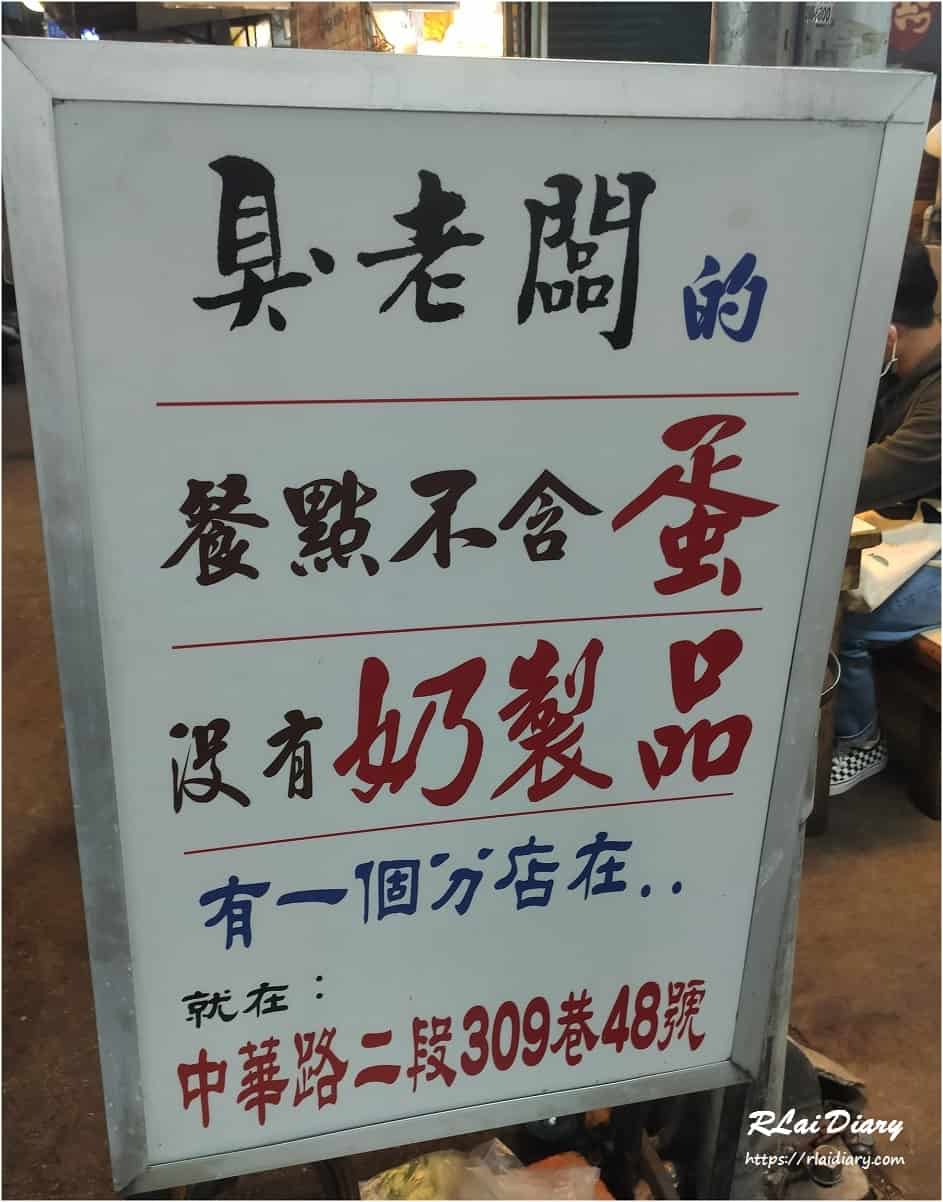 臭老闆的
餐點不含蛋
沒有奶製品
有一個分店在..
就在：
中華路二段309巷48號
RLai Diary
https://rlaidiary.com